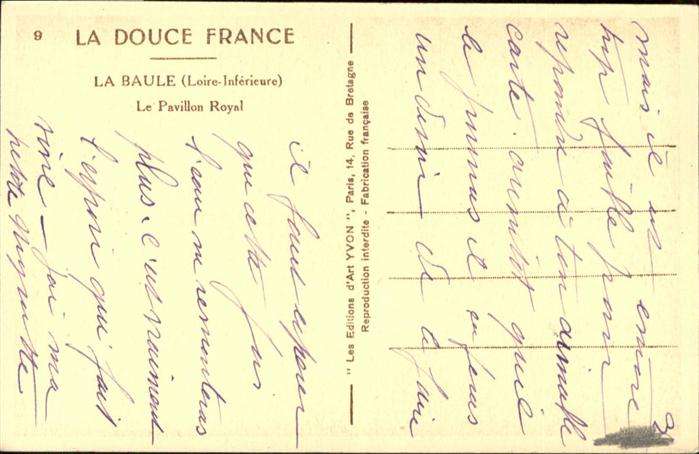 9
LA DOUCE FRANCE
LA BAULE (Loire-Inférieure)
Le Pavillon Royal
" Les Editions d'Art YVON ", Paris, 14, Rue de Bretagne
Reproduction interdite - Fabrication française
2
mais il est encore
trop faible pour
repondre à ton aimable
carte. aussitôt qu'il
le pourra il se fera
un devoir de le faire
il faut esperer
que cette fois
l'eau ne remontera
plus. c'est vraiment
l'espoir qui fait
vivre — j'ai ma
petite